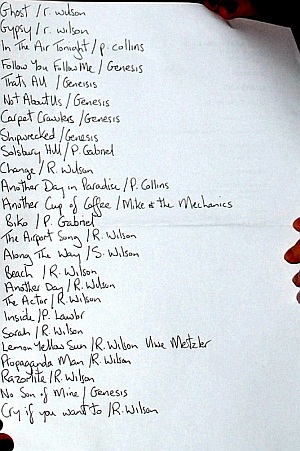 Ghost / r. wilson
Gypsy / r. wilson
In The Air Tonight / p. collins
Follow You Follow Me / Genesis
Thats All / Genesis
Not About Us / Genesis
Carpet Crawlers / Genesis
Shipwrecked / Genesis
Solsbury Hill / P. Gabriel
Change / R. Wilson
Another Day in Paradise / P. Collins
Another Cup of Coffee / Mike & the Mechanics
Biko / P. Gabriel
The Airport Song / R. Wilson
Along The Way / S. Wilson
Beach / R. Wilson
Another Day / R. Wilson
The Actor / R. Wilson
Inside / P. Lawlor
Sarah / R. Wilson
Lemon Yellow Sun / R. Wilson Uwe Metzler
Propaganda Man / R. Wilson
Razorlite / R. Wilson
No Son of Mine / Genesis
Cry if you want to / R. Wilson